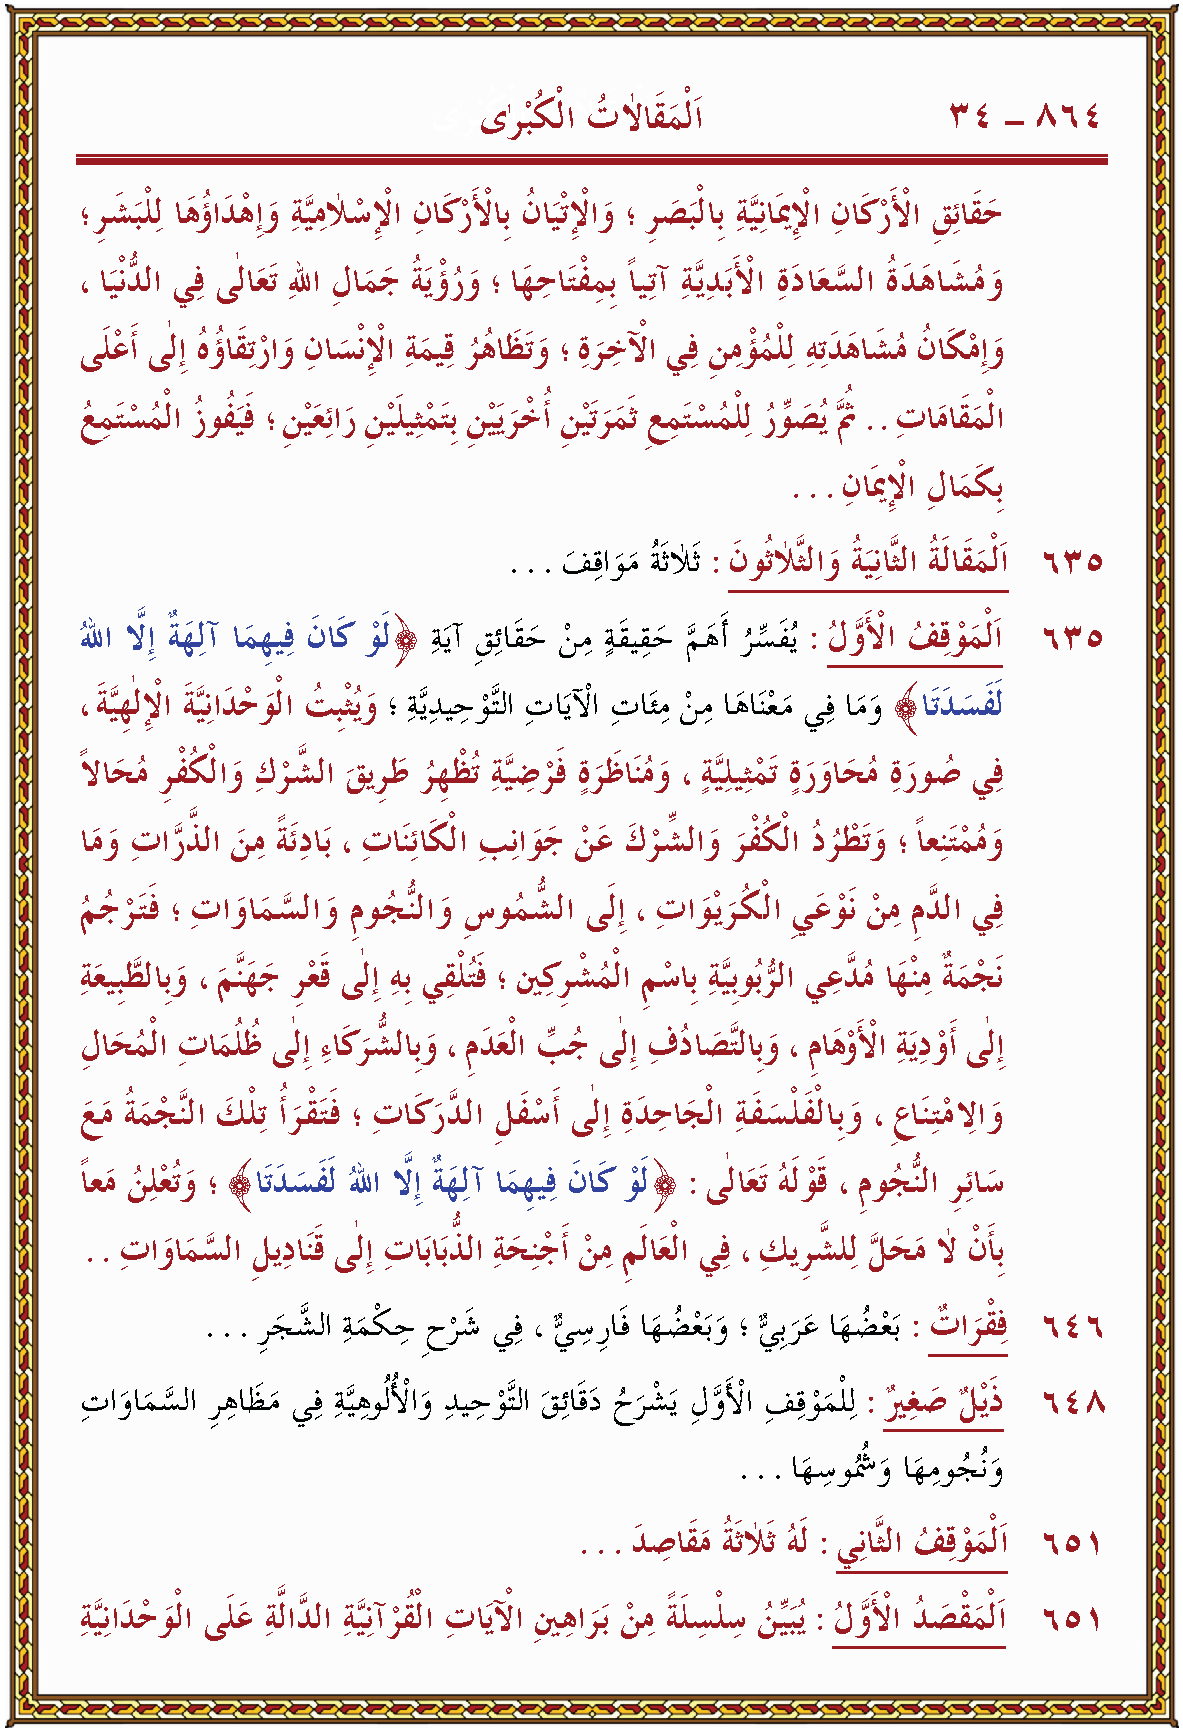 ٨٦٤ – ٣٤ اَلْمَقَالاٰتُ الْكُبْرٰى
حَقَائِقِ الْأَرْكَانِ الْإِيمَانِيَّةِ بِالْبَصَرِ ؛ وَالْإِتْيَانُ بِالْأَرْكَانِ الْإِسْلاٰمِيَّةِ وَإِهْدَاؤُهَا لِلْبَشَرِ ؛
وَمُشَاهَدَةُ السَّعَادَةِ الْأَبَدِيَّةِ آتِياً بِمِفْتَاحِهَا ؛ وَرُؤْيَةُ جَمَالِ اللهِ تَعَالٰى فِي الدُّنْيَا ،
وَإِمْكَانُ مُشَاهَدَتِهِ لِلْمُؤْمِنِ فِي الْآخِرَةِ ؛ وَتَظَاهُرُ قِيمَةِ الْإِنْسَانِ وَارْتِقَاؤُهُ إِلٰى أَعْلَى
الْمَقَامَاتِ . . ثُمَّ يُصَوِّرُ لِلْمُسْتَمِعِ ثَمَرَتَيْنِ أُخْرَيَيْنِ بِتَمْثِيلَيْنِ رَائِعَيْنِ ؛ فَيَفُوزُ الْمُسْتَمِعُ
بِكَمَالِ الْإِيمَانِ . . .
٦٣٥ اَلْمَقَالَةُ الثَّانِيَةُ وَالثَّلاٰثُونَ : ثَلاٰثَةُ مَوَاقِفَ . . .
٦٣٥ اَلْمَوْقِفُ الْأَوَّلُ : يُفَسِّرُ أَهَمَّ حَقِيقَةٍ مِنْ حَقَائِقِ آيَةِ ﴿لَوْ كَانَ فِيهِمَا آلِهَةٌ إِلَّا اللهُ
لَفَسَدَتَا﴾ وَمَا فِي مَعْنَاهَا مِنْ مِئَاتِ الْآيَاتِ التَّوْحِيدِيَّةِ ؛ وَيُثْبِتُ الْوَحْدَانِيَّةَ الْإِلٰهِيَّةَ ،
فِي صُورَةِ مُحَاوَرَةٍ تَمْثِيلِيَّةٍ ، وَمُنَاظَرَةٍ فَرْضِيَّةٍ تُظْهِرُ طَرِيقَ الشَّرْكِ وَالْكُفْرِ مُحَالاً
وَمُمْتَنِعاً ؛ وَتَطْرُدُ الْكُفْرَ وَالشِّرْكَ عَنْ جَوَانِبِ الْكَائِنَاتِ ، بَادِئَةً مِنَ الذَّرَّاتِ وَمَا
فِي الدَّمِ مِنْ نَوْعَيِ الْكُرَيْوَاتِ ، إِلَى الشُّمُوسِ وَالنُّجُومِ وَالسَّمَاوَاتِ ؛ فَتَرْجُمُ
نَجْمَةٌ مِنْهَا مُدَّعِي الرُّبُوبِيَّةِ بِاسْمِ الْمُشْرِكِينَ ؛ فَتُلْقِي بِهِ إِلٰى قَعْرِ جَهَنَّمَ ، وَبِالطَّبِيعَةِ
إِلٰى أَوْدِيَةِ الْأَوْهَامِ ، وَبِالتَّصَادُفِ إِلٰى جُبِّ الْعَدَمِ ، وَبِالشُّرَكَاءِ إِلٰى ظُلُمَاتِ الْمُحَالِ
وَالِامْتِنَاعِ ، وَبِالْفَلْسَفَةِ الْجَاحِدَةِ إِلٰى أَسْفَلِ الدَّرَكَاتِ ؛ فَتَقْرَأُ تِلْكَ النَّجْمَةُ مَعَ
سَائِرِ النُّجُومِ ، قَوْلَهُ تَعَالٰى : ﴿لَوْ كَانَ فِيهِمَا آلِهَةٌ إِلَّا اللهُ لَفَسَدَتَا﴾ ؛ وَتُعْلِنُ مَعاً
بِأَنْ لاٰ مَحَلَّ لِلشَّرِيكِ ، فِي الْعَالَمِ مِنْ أَجْنِحَةِ الذُّبَابَاتِ إِلٰى قَنَادِيلِ السَّمَاوَاتِ . .
٦٤٦ فِقْرَاتٌ : بَعْضُهَا عَرَبِيٌّ ؛ وَبَعْضُهَا فَارِسِيٌّ ، فِي شَرْحِ حِكْمَةِ الشَّجَرِ . . .
٦٤٨ ذَيْلٌ صَغِيرٌ : لِلْمَوْقِفِ الْأَوَّلِ يَشْرَحُ دَقَائِقَ التَّوْحِيدِ وَالْأُلُوهِيَّةِ فِي مَظَاهِرِ السَّمَاوَاتِ
وَنُجُومِهَا وَشُمُوسِهَا . . .
٦٥١ اَلْمَوْقِفُ الثَّانِي : لَهُ ثَلاٰثَةُ مَقَاصِدَ . . .
٦٥١ اَلْمَقْصَدُ الْأَوَّلُ : يُبَيِّنُ سِلْسِلَةً مِنْ بَرَاهِينِ الْآيَاتِ الْقُرْآنِيَّةِ الدَّالَّةِ عَلَى الْوَحْدَانِيَّةِ